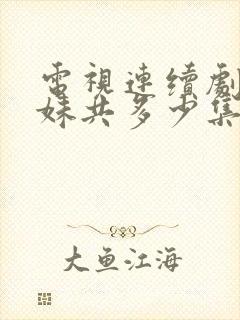 電視連續劇
妹共多少集
大鱼江海